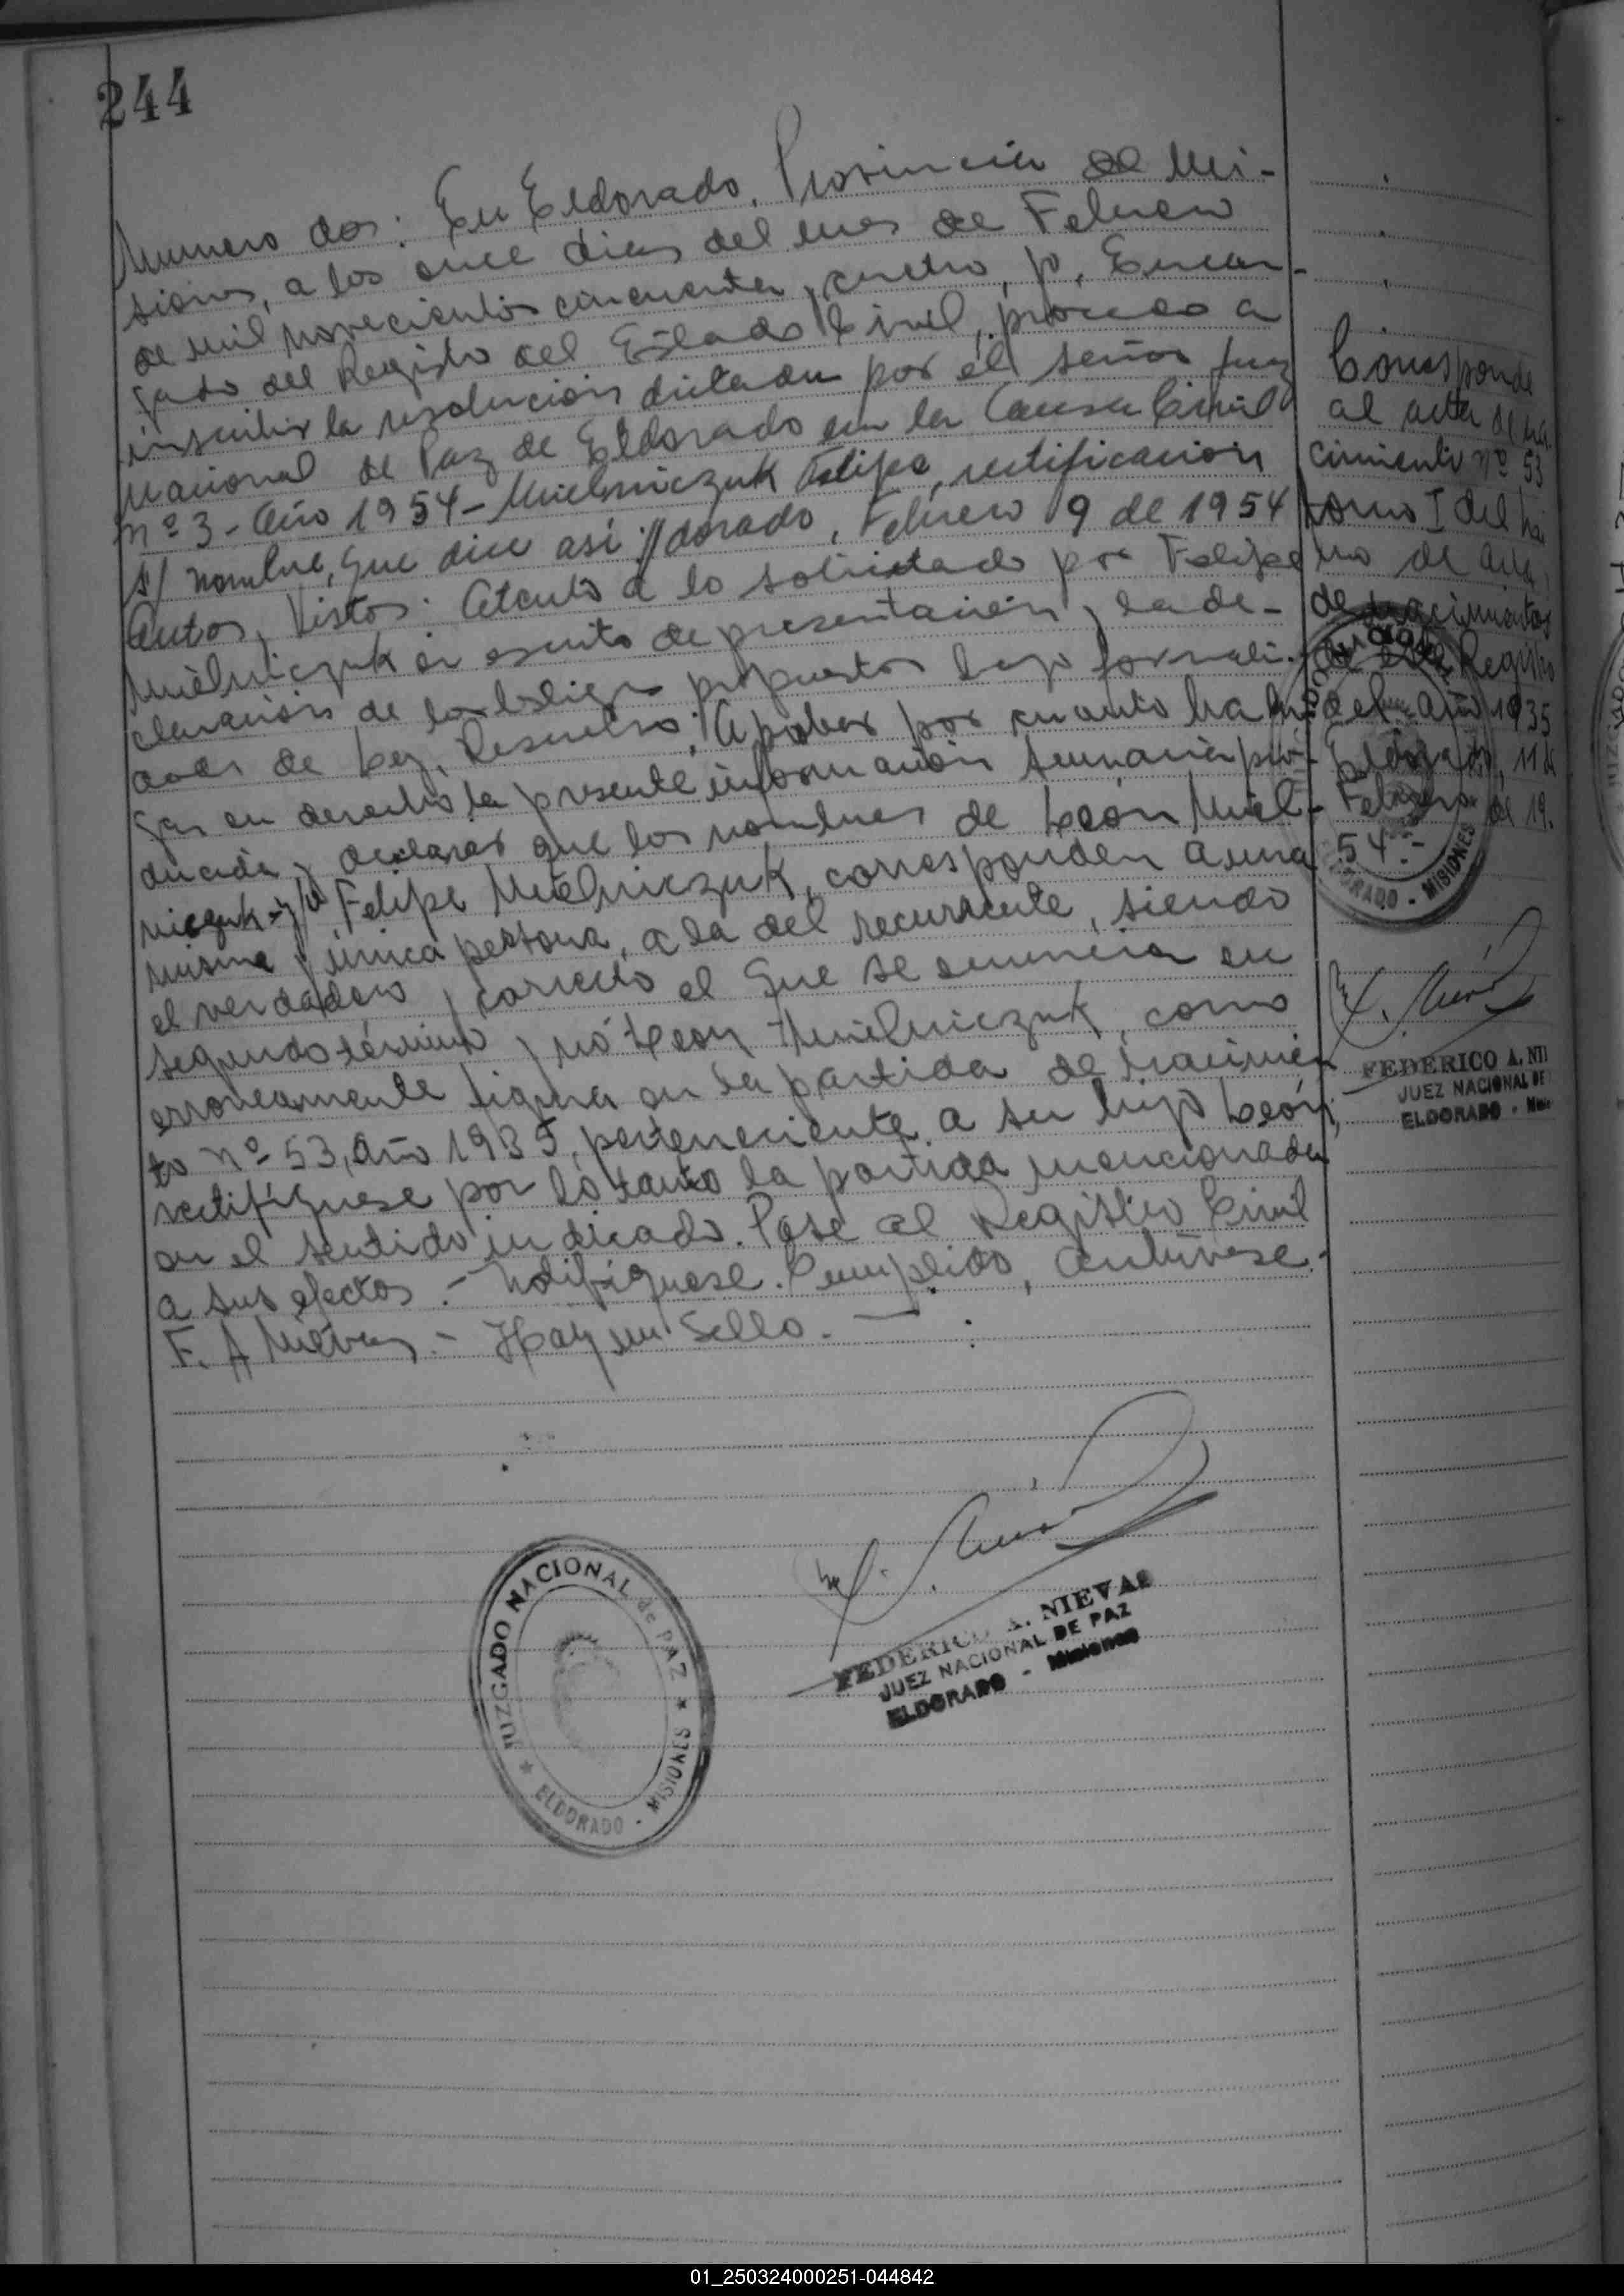 244
Numero dos: En Eldorado, Provincia de Mi-
siones, a los once dias del mes de Febrero
de mil novecientos cincuenta y cuatro, yo, Encar-
gado del Registro del Estado Civil, procedo a
inscribir la resolución dictada por el señor Juez
Nacional de Paz de Eldorado en la Causa Civil
nº 3 - Año 1954 - Mielniczuk Felipe, rectificación
s/ nombre, que dice asi: //dorado, Febrero 9 de 1954
Autos y Vistos: Atento a lo solicitado por Felipe
Mielniczuk en escrito de presentación y la de-
claración de los testigos propuestos bajo formali-
dades de ley, Resuelvo: Aprobar por cuanto ha lu-
gar en derecho la presente información sumaria pro-
ducida y declarar que los nombres de León Miel-
niczuk y Felipe Mielniczuk, corresponden a una
misma y única persona, a la del recurrente, siendo
el verdadero y correcto el que se enuncia en
segundo término y nó León Mielniczuk, como
erroneamente figura en la partida de nacimien
to nº 53, Año 1935, perteneciente a su hijo León,
rectifíquese por lo tanto la partida mencionada
en el sentido indicado. Pase al Registro Civil
a sus efectos.- Notifíquese. Cumplido, Archívese.-
F. A Nievas.- Hay un Sello.-
Corresponde
al acta de na
cimiento nº 53
tomo I del
de actas
de nacimientos
de este Registro
del año 1935
Eldorado, 11 de
Febrero de 19.
54.-
ELDORADO - MISIONES
FEDERICO A. NI
JUEZ NACIONAL DE
ELDORADO -
JUZGADO NACIONAL de PAZ
ELDORADO - MISIONES
FEDERICO A. NIEVAS
JUEZ NACIONAL DE PAZ
ELDORADO - Misiones
01_250324000251-044842